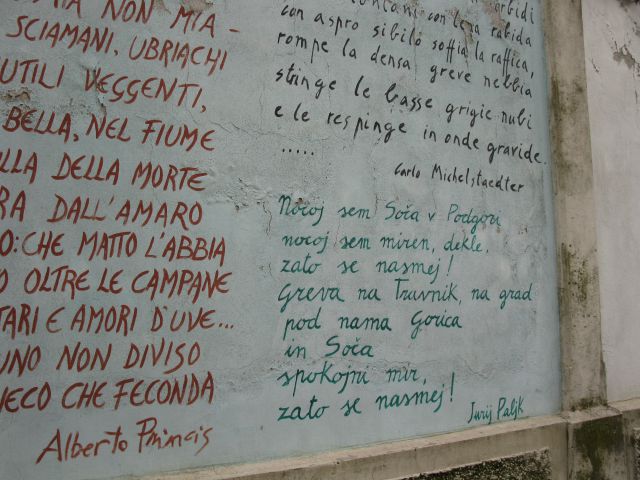 NON MIA -
SCIAMANI, UBRIACHI
UTILI VEGGENTI,
BELLA, NEL FIUME
DELLA MORTE
DALL'AMARO
: CHE MATTO L'ABBIA
OLTRE LE CAMPANE
TARI E AMORI D'UVE...
UNO NON DIVISO
IECO CHE FECONDA
Alberto Princis
con lena rabida
con aspro sibilo soffia la raffica,
rompe la densa greve nebbia
stringe le basse grigie nubi
e le respinge in onde gravide.
.....
Carlo Michelstaedter
Nocoj sem Soča v Podgori
nocoj sem miren, dekle,
zato se nasmej!
Greva na Travnik, na grad
pod nama Gorica
in Soča
spokojni mir,
zato se nasmej!
Jurij Paljk